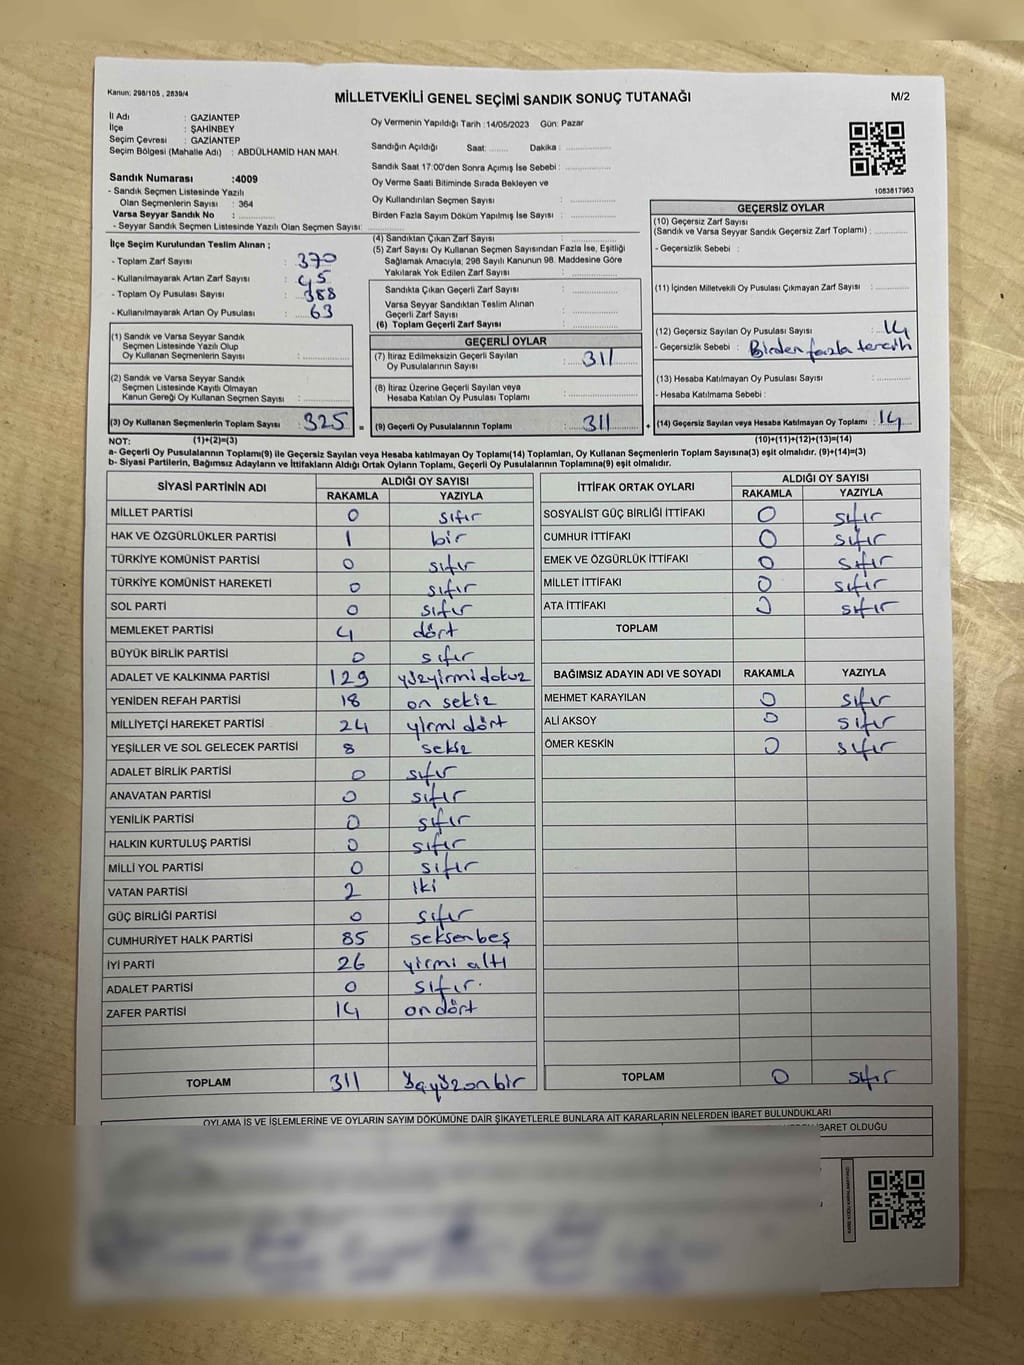 Kanun: 298/105 , 2839/4
MİLLETVEKİLİ GENEL SEÇİMİ SANDIK SONUÇ TUTANAĞI
M/2
İl Adı : GAZİANTEP
İlçe : ŞAHİNBEY
Seçim Çevresi : GAZİANTEP
Seçim Bölgesi (Mahalle Adı) : ABDÜLHAMİD HAN MAH.
Sandık Numarası :4009
- Sandık Seçmen Listesinde Yazılı
Olan Seçmenlerin Sayısı : 364
Varsa Seyyar Sandık No :
- Seyyar Sandık Seçmen Listesinde Yazılı Olan Seçmen Sayısı:
Oy Vermenin Yapıldığı Tarih :14/05/2023 Gün: Pazar
Sandığın Açıldığı Saat: Dakika :
Sandık Saat 17:00'den Sonra Açımış İse Sebebi :
Oy Verme Saati Bitiminde Sırada Bekleyen ve
Oy Kullandırılan Seçmen Sayısı :
Birden Fazla Sayım Döküm Yapılmış İse Sayısı :
1083817963
İlçe Seçim Kurulundan Teslim Alınan ;
- Toplam Zarf Sayısı : 370
- Kullanılmayarak Artan Zarf Sayısı : 45
- Toplam Oy Pusulası Sayısı : 388
- Kullanılmayarak Artan Oy Pusulası : 63
(1) Sandık ve Varsa Seyyar Sandık
Seçmen Listesinde Yazılı Olup
Oy Kullanan Seçmenlerin Sayısı :
(2) Sandık ve Varsa Seyyar Sandık
Seçmen Listesinde Kayıtlı Olmayan
Kanun Gereği Oy Kullanan Seçmen Sayısı :
(3) Oy Kullanan Seçmenlerin Toplam Sayısı : 325 =
(4) Sandıktan Çıkan Zarf Sayısı :
(5) Zarf Sayısı Oy Kullanan Seçmen Sayısından Fazla İse, Eşitliği
Sağlamak Amacıyla, 298 Sayılı Kanunun 98. Maddesine Göre
Yakılarak Yok Edilen Zarf Sayısı :
Sandıkta Çıkan Geçerli Zarf Sayısı :
Varsa Seyyar Sandıktan Teslim Alınan
Geçerli Zarf Sayısı :
(6) Toplam Geçerli Zarf Sayısı :
GEÇERLİ OYLAR
(7) İtiraz Edilmeksizin Geçerli Sayılan
Oy Pusulalarının Sayısı : 311
(8) İtiraz Üzerine Geçerli Sayılan veya
Hesaba Katılan Oy Pusulası Toplamı :
(9) Geçerli Oy Pusulalarının Toplamı : 311 +
GEÇERSİZ OYLAR
(10) Geçersiz Zarf Sayısı
(Sandık ve Varsa Seyyar Sandık Geçersiz Zarf Toplamı) :
- Geçersizlik Sebebi :
(11) İçinden Milletvekili Oy Pusulası Çıkmayan Zarf Sayısı :
(12) Geçersiz Sayılan Oy Pusulası Sayısı : 14
- Geçersizlik Sebebi : Birden fazla tercih
(13) Hesaba Katılmayan Oy Pusulası Sayısı :
- Hesaba Katılmama Sebebi :
(14) Geçersiz Sayılan veya Hesaba Katılmayan Oy Toplamı : 14
NOT: (1)+(2)=(3) (10)+(11)+(12)+(13)=(14)
a- Geçerli Oy Pusulalarının Toplamı(9) ile Geçersiz Sayılan veya Hesaba katılmayan Oy Toplamı(14) Toplamları, Oy Kullanan Seçmenlerin Toplam Sayısına(3) eşit olmalıdır. (9)+(14)=(3)
b- Siyasi Partilerin, Bağımsız Adayların ve İttifakların Aldığı Ortak Oyların Toplamı, Geçerli Oy Pusulalarının Toplamına(9) eşit olmalıdır.
SİYASİ PARTİNİN ADI ALDIĞI OY SAYISI
RAKAMLA YAZIYLA
MİLLET PARTİSİ 0 sıfır
HAK VE ÖZGÜRLÜKLER PARTİSİ 1 bir
TÜRKİYE KOMÜNİST PARTİSİ 0 sıfır
TÜRKİYE KOMÜNİST HAREKETİ 0 sıfır
SOL PARTİ 0 sıfır
MEMLEKET PARTİSİ 4 dört
BÜYÜK BİRLİK PARTİSİ 0 sıfır
ADALET VE KALKINMA PARTİSİ 129 yüzyirmidokuz
YENİDEN REFAH PARTİSİ 18 on sekiz
MİLLİYETÇİ HAREKET PARTİSİ 24 yirmi dört
YEŞİLLER VE SOL GELECEK PARTİSİ 8 sekiz
ADALET BİRLİK PARTİSİ 0 sıfır
ANAVATAN PARTİSİ 0 sıfır
YENİLİK PARTİSİ 0 sıfır
HALKIN KURTULUŞ PARTİSİ 0 sıfır
MİLLİ YOL PARTİSİ 0 sıfır
VATAN PARTİSİ 2 iki
GÜÇ BİRLİĞİ PARTİSİ 0 sıfır
CUMHURİYET HALK PARTİSİ 85 seksenbeş
İYİ PARTİ 26 yirmi altı
ADALET PARTİSİ 0 sıfır.
ZAFER PARTİSİ 14 ondört
TOPLAM 311 Üçyüzonbir
İTTİFAK ORTAK OYLARI ALDIĞI OY SAYISI
RAKAMLA YAZIYLA
SOSYALİST GÜÇ BİRLİĞİ İTTİFAKI 0 sıfır
CUMHUR İTTİFAKI 0 sıfır
EMEK VE ÖZGÜRLÜK İTTİFAKI 0 sıfır
MİLLET İTTİFAKI 0 sıfır
ATA İTTİFAKI 0 sıfır
TOPLAM
BAĞIMSIZ ADAYIN ADI VE SOYADI RAKAMLA YAZIYLA
MEHMET KARAYILAN 0 sıfır
ALİ AKSOY 0 sıfır
ÖMER KESKİN 0 sıfır
TOPLAM 0 sıfır
OYLAMA İŞ VE İŞLEMLERİNE VE OYLARIN SAYIM DÖKÜMÜNE DAİR ŞİKAYETLERLE BUNLARA AİT KARARLARIN NELERDEN İBARET BULUNDUKLARI
İBARET OLDUĞU